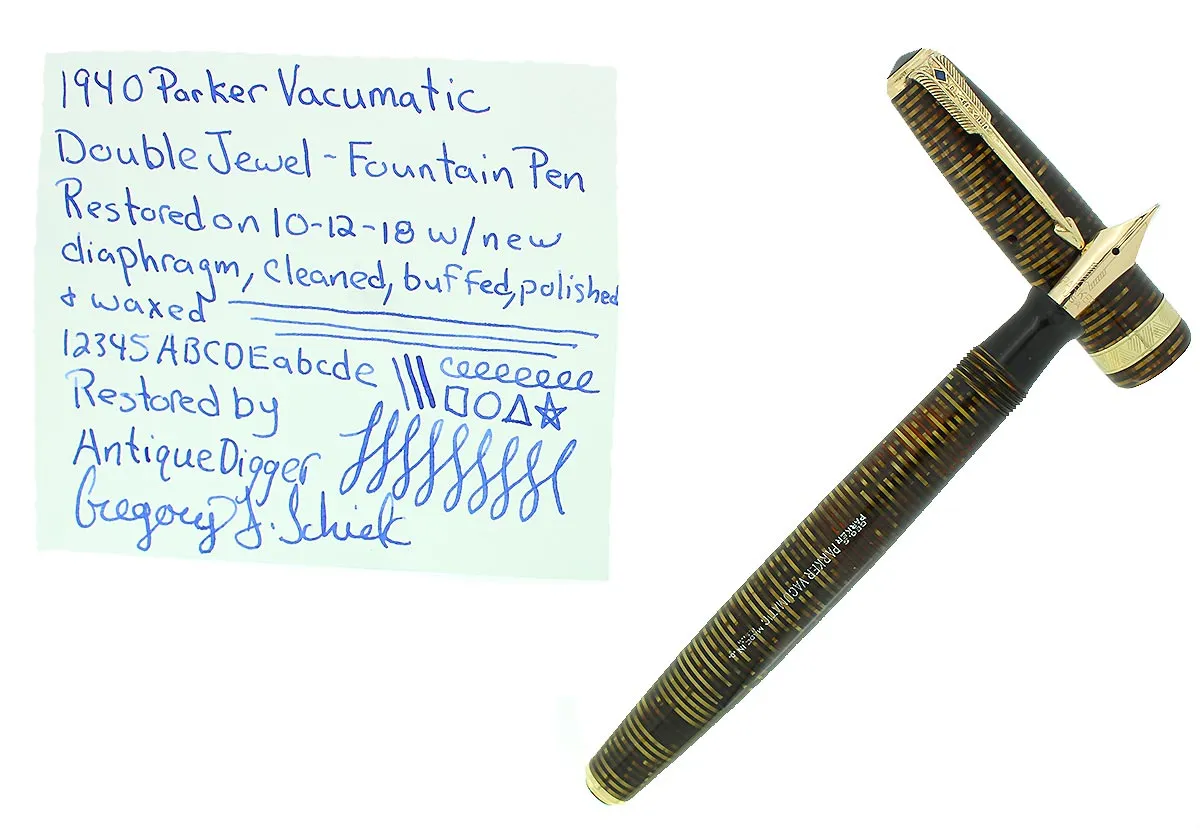 1940 Parker Vacumatic
Double Jewel ~ Fountain Pen
Restored on 10-12-18 w/new
diaphragm, cleaned, buffed, polished
& waxed
12345 ABCDE abcde
Restored by
AntiqueDigger
Gregory J. Schiek
PARKER VACUMATIC
PARKER
MADE IN